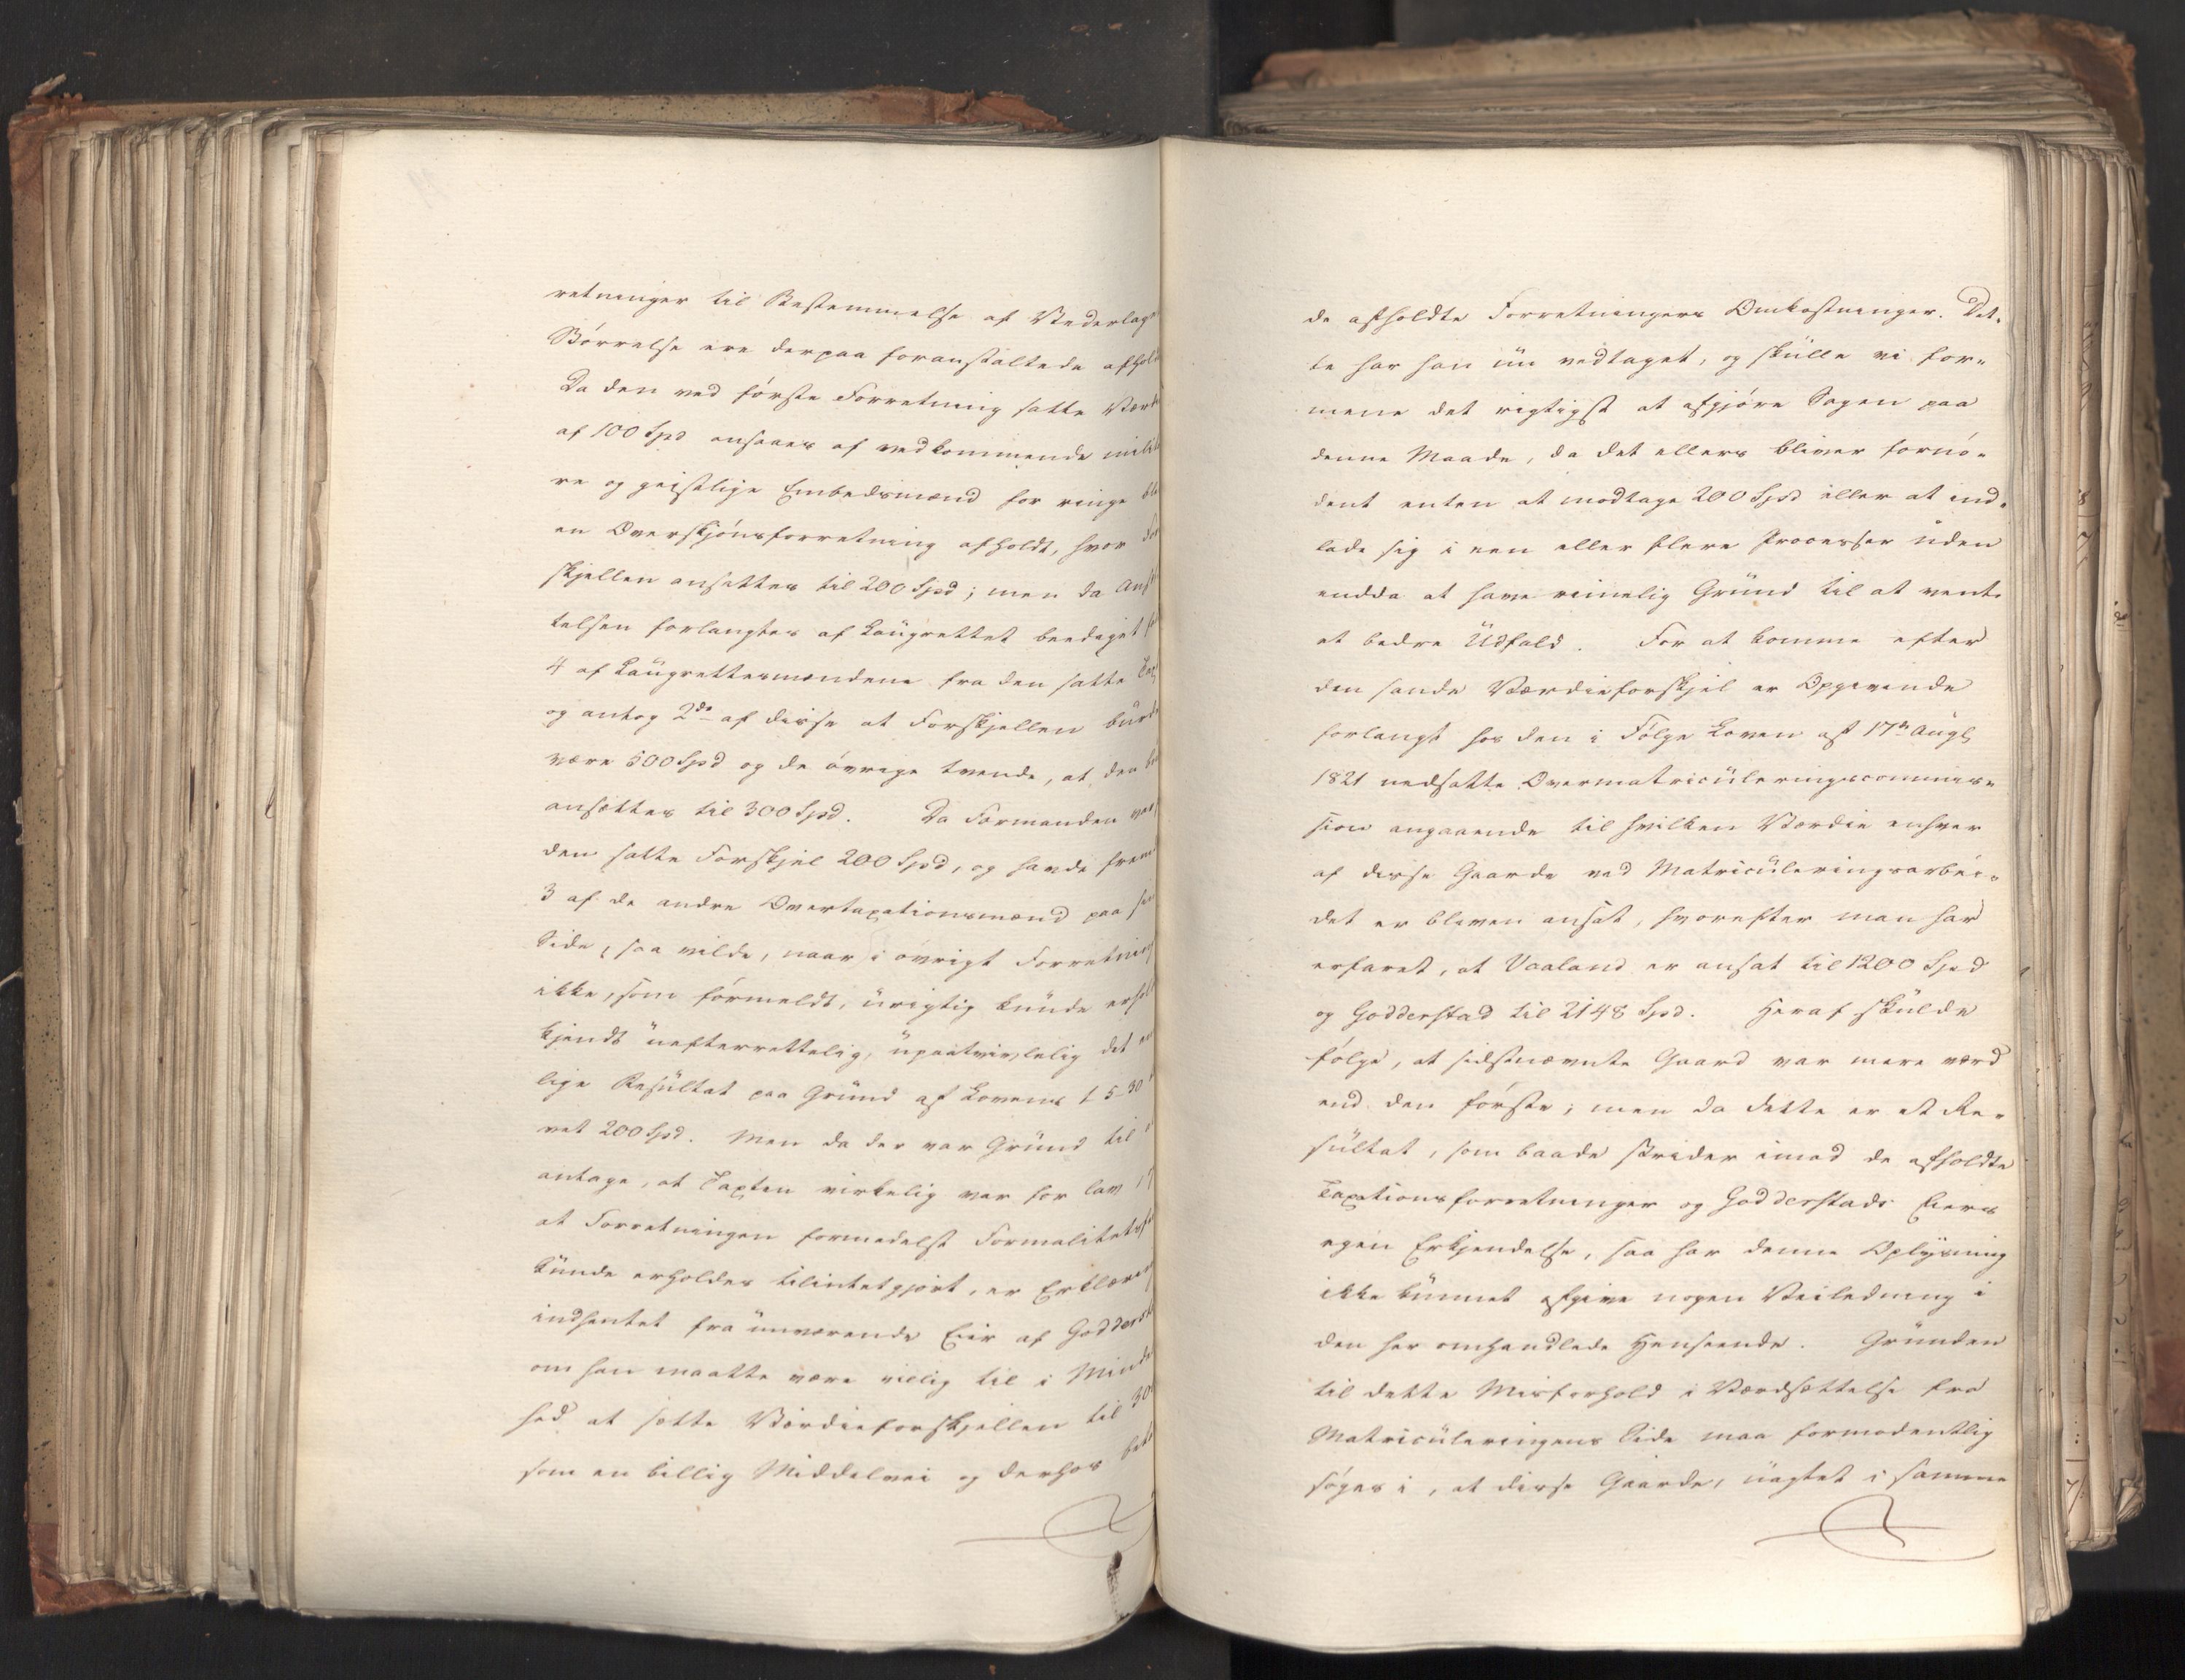 retninger til Bestemmelse af Vederlag
Størrelse ere derpaa foranstaltede afhol
Da den ved første Forretning satte Værd
af 100 Spd ansaaes af vedkommende mili
re og geistlige Embedsmænd for ringe ble
en Overskjønsforretning afholdt, hvor For
skjellen ansattes til 200 Spd; men da Ansæt
telsen forlangtes af Laugrettet beediget
4 af Laugrettesmændene fra den satte Taxt
og antog 2de af disse at Forskjellen burde
være 600 Spd og de øvrige tvende, at den
ansættes til 300 Spd. Da Formanden
den satte Forskjel 200 Spd, og havde frem
3 af de andre Overtaxationsmænd paa sin
Side, saa vilde, naar i øvrigt Forretning
ikke, som førmeldt, urigtig kunde erhol
kjendt uefterrettelig, upaatvivlelig det en
lige Resultat paa Grund af Lovens 1-5-30
vet 200 Spd. Men da der var Grund til
antage, at Taxten virkelig var for lav
at Forretningen formedelst Formalitets
kunde erholdes tilintetgjort, er Erklæring
indhentet fra nuværende Eier af Godderst
om han maatte være villig til i Minde
hed at sætte Værdieforskjellen til 30
som en billig Middelvei og derhos beta
de afholdte Forretningers Omkostninger. Det-
te har han nu vedtaget, og skulle vi for-
mene det rigtigst at afgjøre Sagen paa
denne Maade, da det ellers bliver fornø-
dent enten at modtage 200 Spd eller at ind-
lade sig i een eller flere Processer uden
endda at have rimelig Grund til at vente
et bedre Udfald. For at komme efter
den sande Værdieforskjel er Opgivende
forlangt hos den i Følge Loven af 17de Augt
1821 nedsatte Overmatriculeringscommis-
sion angaaende til hvilken Værdie enhver
af disse Gaarde ved Matriculeringsarbei-
det er bleven ansat, hvorefter man har
erfaret, at Vaaland er ansat til 1200 Spd
og Godderstad til 2148 Spd. Heraf skulde
følge, at sidstnævnte Gaard var mere værd
end den første; men da dette er et Re-
sultat, som baade strider imod de afholdte
Taxationsforretninger og Godderstads Eiers
egen Erkjendelse, saa har denne Oplysning
ikke kunnet afgive nogen Veiledning i
den her omhandlede Henseende. Grunden
til dette Misforhold i Værdsættelse fra
Matriculeringens Side maa formodentlig
søges i, at disse Gaarde, uagtet i samme